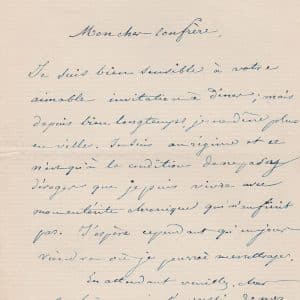 Mon cher confrère,
Je suis bien sensible à votre
aimable invitation à dîner ; mais
depuis bien longtemps, je ne dîne plus
en ville. Je suis au régime et ce
n'est qu'à la condition de ne pas y
déroger que je puis vivre avec
mon entérite chronique qui n'en finit
pas. J'espère cependant qu'un jour
viendra où je pourrai me rattraper.
En attendant veuillez, cher